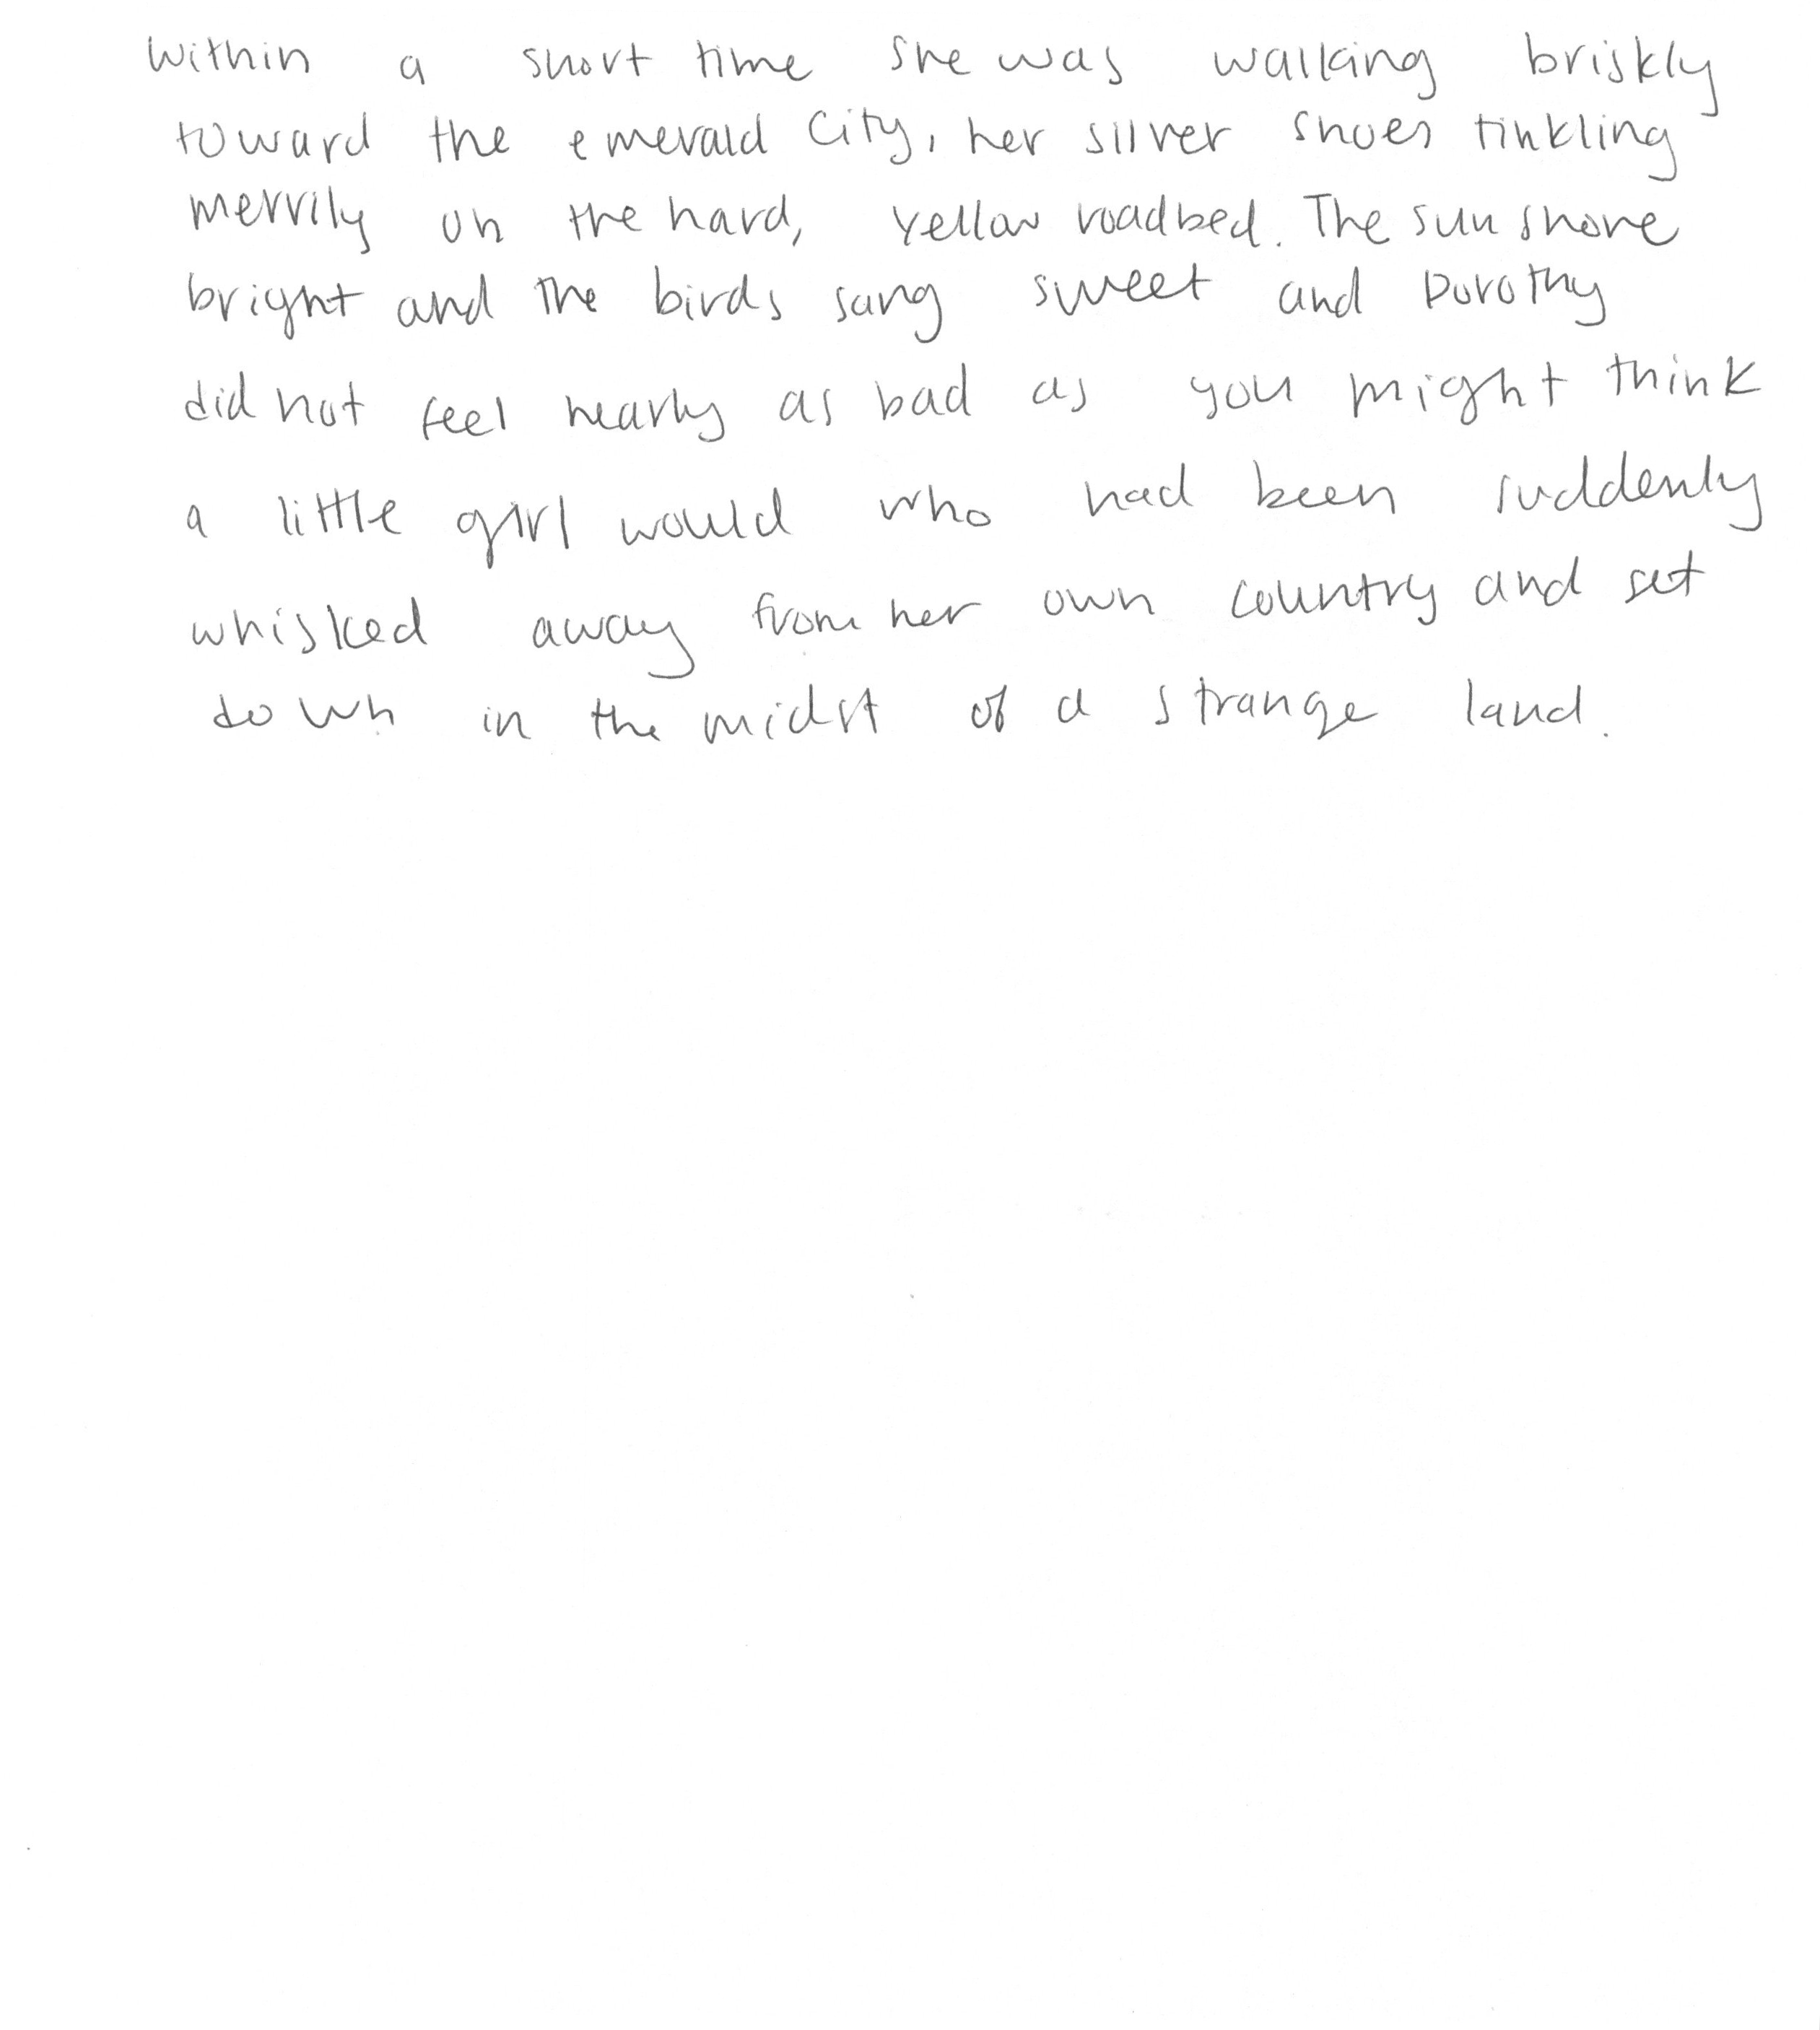 Within a short time she was walking briskly
toward the emerald City, her silver shoes tinkling
merrily on the hard, yellow roadbed. The sun shone
bright and the birds sang sweet and Dorothy
did not feel nearly as bad as you might think
a little girl would who had been suddenly
whisked away from her own country and set
down in the midst of a strange land.